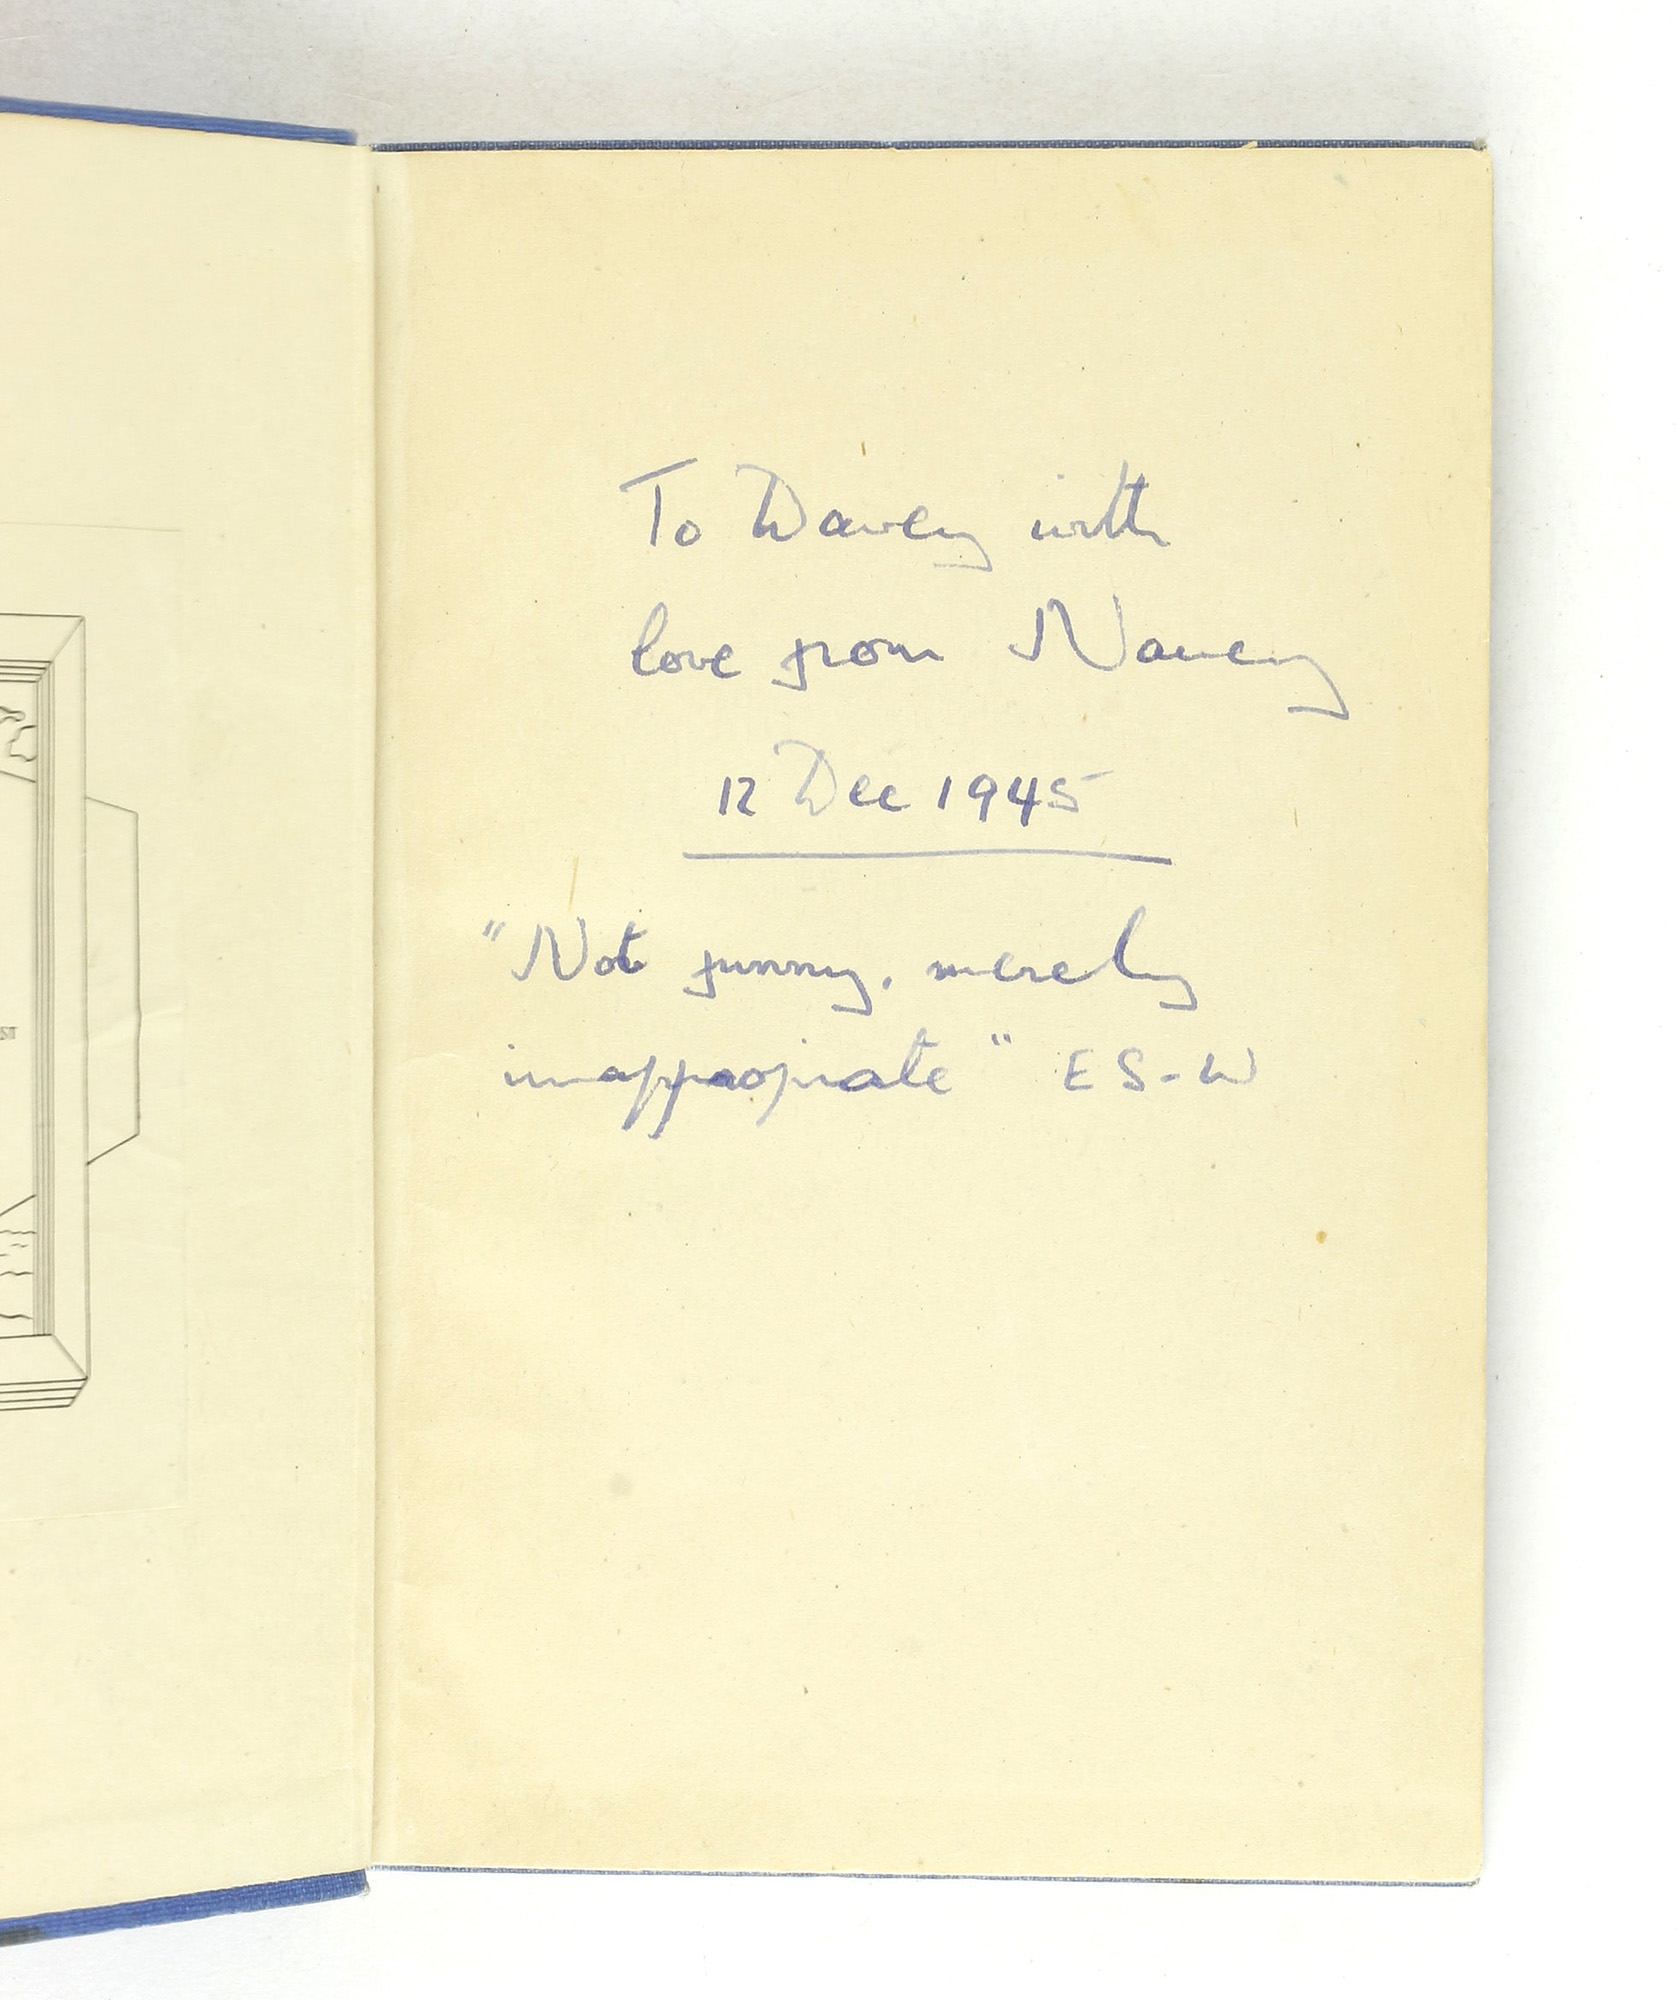 To Davey with
love from Nancy
12 Dec 1945
"Not funny, merely
inappropriate" ES-W